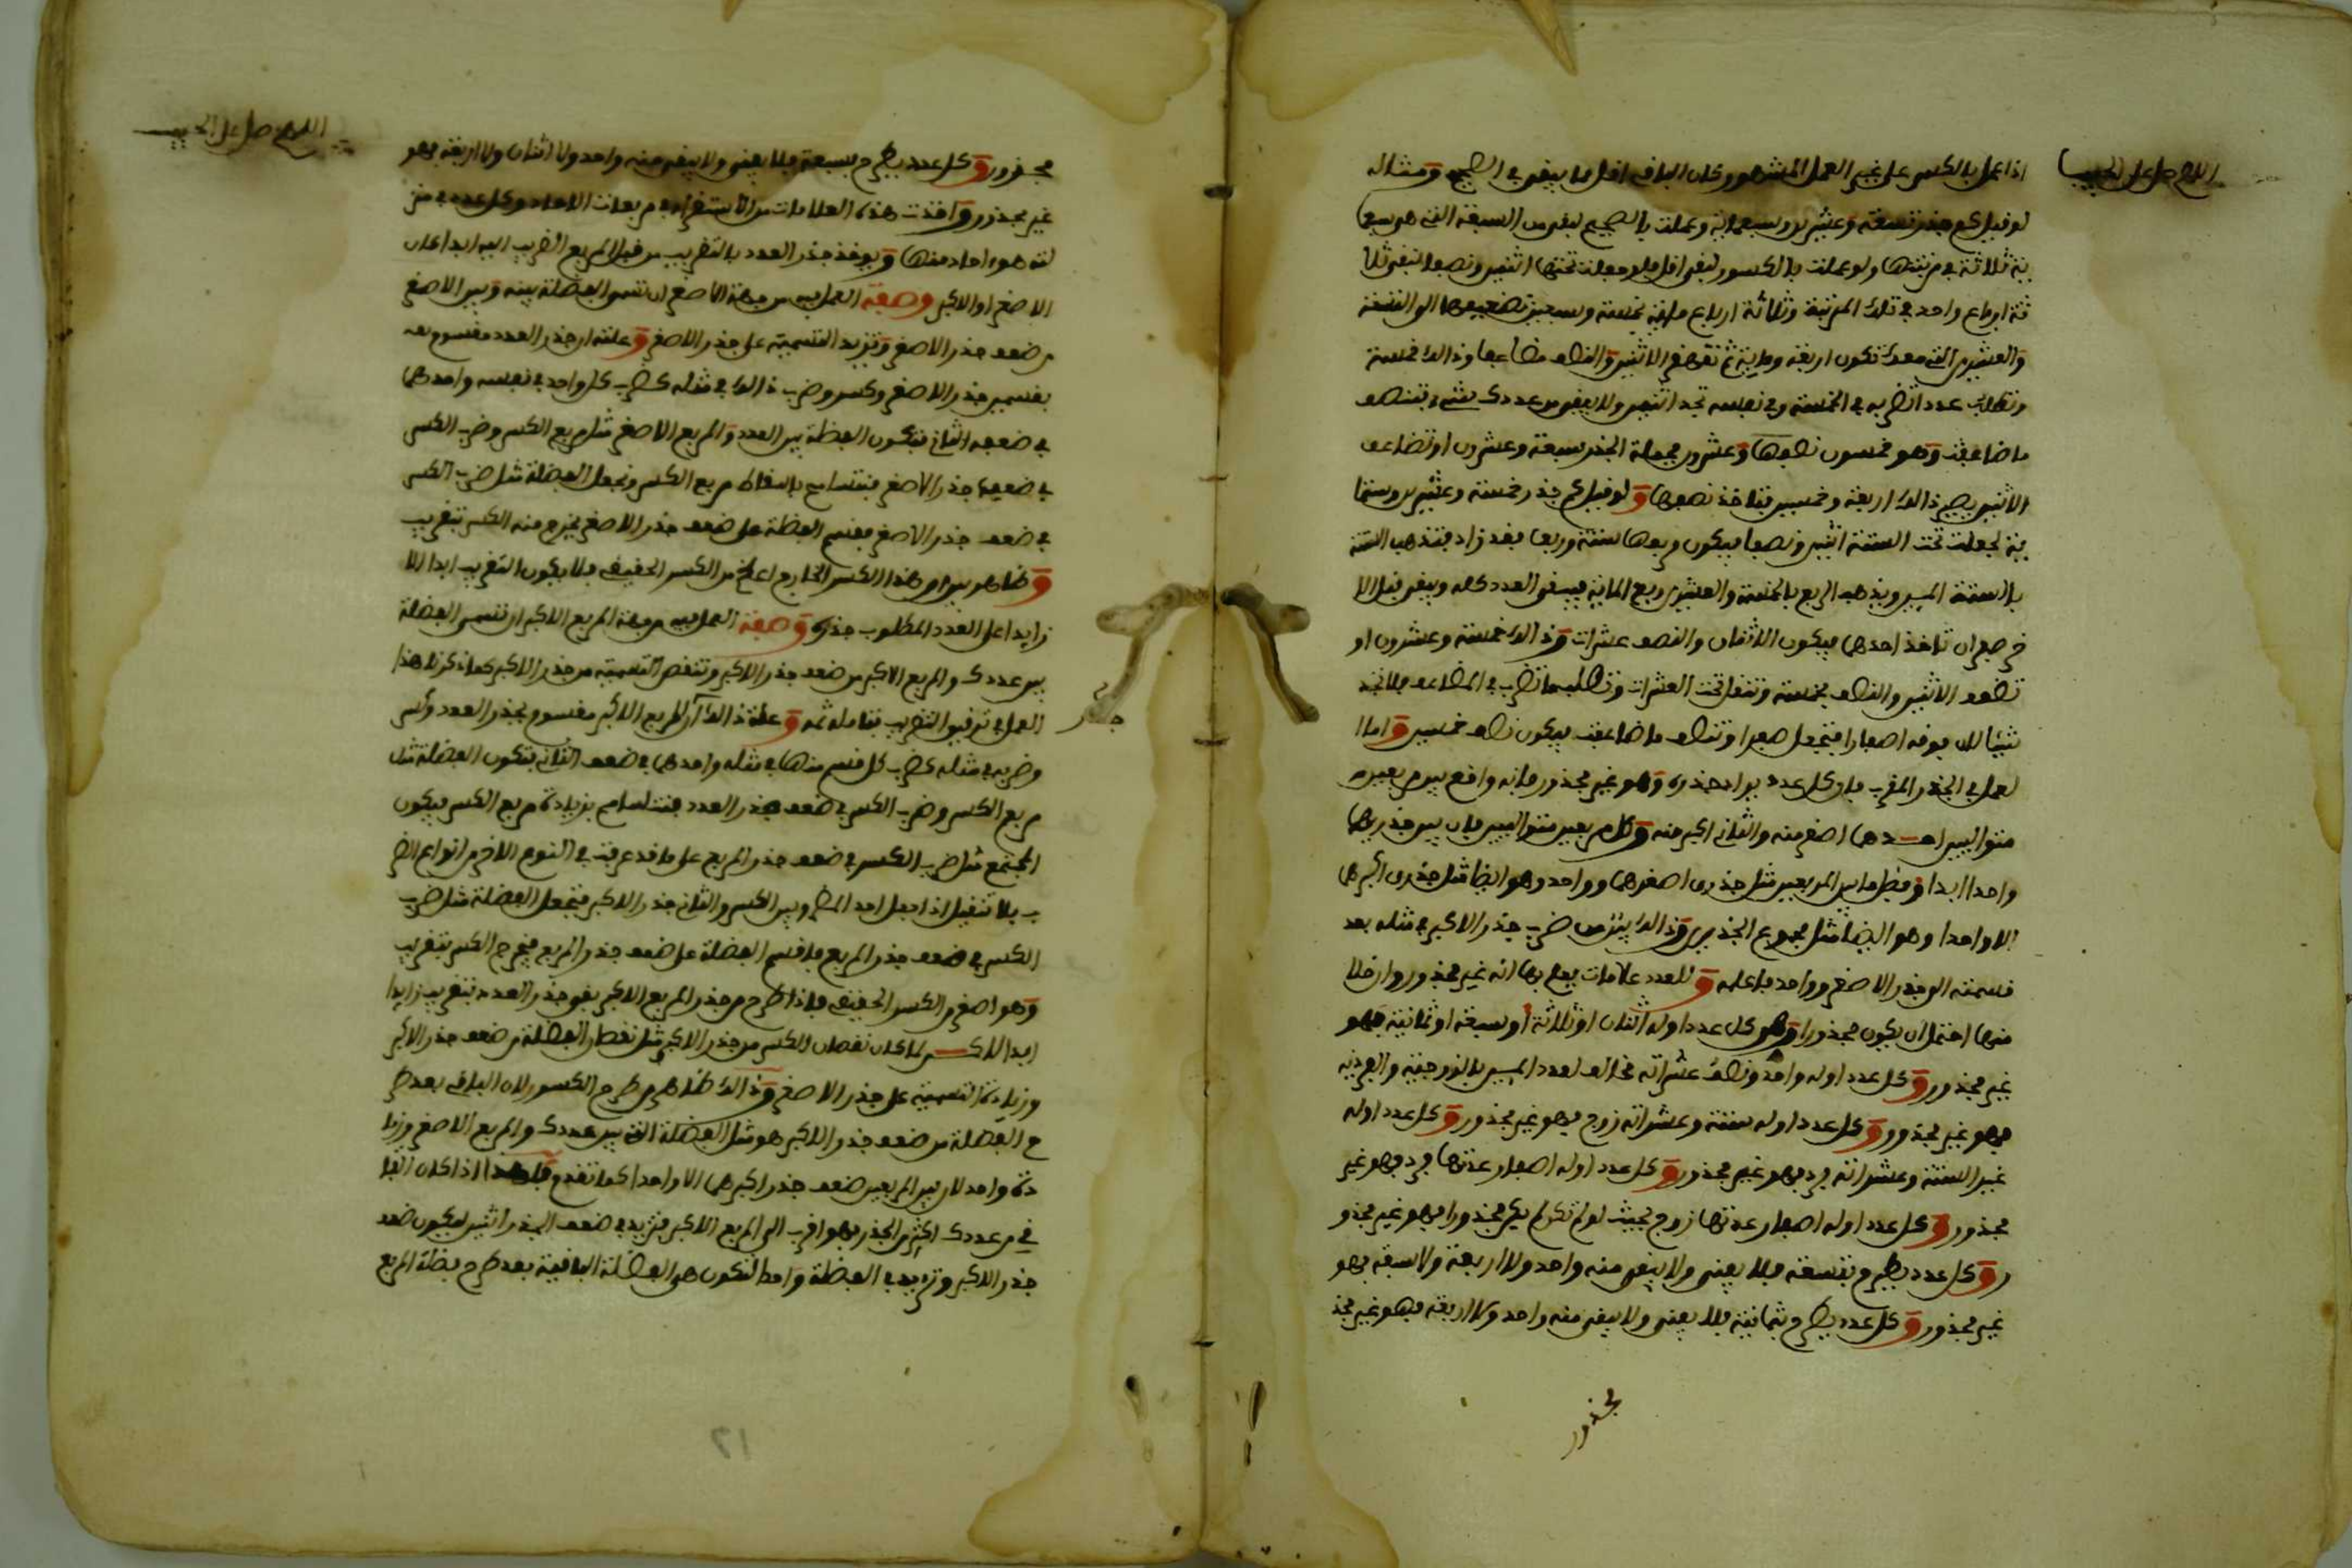 اللهم صل على الحبيب
اذا عمل بالكسر على غير العمل المشهور وكان الباقي اقل مما يبقى في الصحيح ومثاله
لو قيل كم جذر تسعة وعشرين وسبعماية وعملت بالصحيح لبقى من السبعة التي هي سبعما
ية ثلاثة في مرتبتها ولو عملت بالكسور لبقى اقل فلو جعلت تحتها اثنين ونصفا لبقى ثلا
ثة ارباع واحد في تلك المرتبة وثلاثة ارباع ماية بخمسة وسبعين تضيفها الى التسعة
والعشرين التي معك تكون اربعة وماية ثم تقهقر الاثنين والنصف مضاعفا وذالك خمسة
وتطلب عدد تضربه في الخمسة وفي نفسه تجد اثنين ولا يبقى من عددك شيء فتنصف
ما ضاعفت وهو خمسون نصفها وعشرين فجملة الجذر سبعة وعشرون او تضاعف
الاثنين يصير ذالك اربعة وخمسين فتاخذ نصفها ولو قيل كم جذر خمسة وعشرين وستما
ية لجعلت تحت الستة اثنين ونصفا فيكون مربعها ستة وربعا فقد زاد فتذهب الستة
بالستة الميين ويذهب الربع بالخمسة والعشرين ربع الماية فيفنى العدد كله ويبقى قبل الا
خر صفران تاخذ احدهما فيكون الاثنان والنصف عشرات وذالك خمسة وعشرون او
تضعف الاثنين والنصف بخمسة وتنقل تحت العشرات وتطلب ما تضرب في المضاعف فلا تجد
شيئا لان فوقه اصفارا فتجعل صفرا وتنصف ما ضاعفت فيكون نصف خمسين واما ا
لعمل في الجذر المقرب فان كل عدد يراد جذره وهو غير مجذور فانه واقع بين مربعين
متواليين احدهما اصغر منه والثاني اكبر منه وكل مربعين متواليين فان بين جذريهما
واحدا ابدا وفضل ما بين المربعين مثل جذري اصغرهما وواحد وهو ايضا مثل جذري اكبرهما
الا واحدا وهو ايضا مثل مجموع الجذرين وذالك يتزن من ضرب جذر الاكبر في مثله بعد
قسمته الى جذر الاصغر وواحد فاعلمه وللعدد علامات يعلم بها انه غير مجذور وان خلا
منها احتمل ان يكون مجذورا وهي كل عدد اوله اثنان او ثلاثة او سبعة او ثمانية فهو
غير مجذور وكل عدد اوله واحد ونصف عشراته مخالف لعدد الميين بالزوجية والفردية
فهو غير مجذور وكل عدد اوله ستة وعشراته زوج فهو غير مجذور وكل عدد اوله
غير الستة وعشراته فرد فهو غير مجذور وكل عدد اوله اصفار عدتها فرد فهو غير
مجذور وكل عدد اوله اصفار عدتها زوج بحيث لو لم تكن لم يكن مجذورا فهو غير مجذو
ر وكل عدد يطرح بتسعة فلا يفنى ولا يبقى منه واحد ولا اربعة ولا سبعة فهو
غير مجذور وكل عدد يطرح بثمانية فلا يفنى ولا يبقى منه واحد ولا اربعة فهو غير مجذ
مجذور
اللهم صل على الحبيب
مجذور وكل عدد يطرح بسبعة فلا يفنى ولا يبقى منه واحد ولا اثنان ولا اربعة فهو
غير مجذور واخذت هذه العلامات من الاستقراء في مربعات الاعداد وكل عدد في منز
لته هو احاد منها ويوخذ جذر العدد بالتقريب من قبل المربع القريب اليه ابدا كان
الاصغر او الاكبر وصفة العمل فيه من جهة الاصغر ان تسمى الفضلة بينه وبين الاصغر
من ضعف جذر الاصغر وتزيد التسمية على جذر الاصغر وعلته ان جذر العدد مقسوم معه
بقسمين جذر الاصغر وكسر وضرب ذالك في مثله كضرب كل واحد في نفسه واحدهما
في ضعف الثاني فتكون الفضلة بين العدد والمربع الاصغر مثل مربع الكسر وضرب الكسر
في ضعف جذر الاصغر فنتسامح باسقاط مربع الكسر ونجعل الفضلة مثل ضرب الكسر
في ضعف جذر الاصغر فنقسم الفضلة على ضعف جذر الاصغر يخرج منه الكسر بتقريب
وظاهر بين ان هذا الكسر الخارج اعظم من الكسر الحقيقي فلا يكون التقريب ابدا الا
زايدا على العدد المطلوب جذره وصفة العمل فيه من جهة المربع الاكبر ان تسمى الفضلة
بين عددك والمربع الاكبر من ضعف جذر الاكبر وتنقص التسمية من جذر الاكبر كما ذكرنا هذا
العمل في تدقيق التقريب بتمامه ثمه وعلة ذالك ان المربع الاكبر مقسوم بجذر العدد وكسر
وضربه في مثله كضرب كل قسم منها في مثله واحدهما في ضعف الثاني فتكون الفضلة مثل
مربع الكسر وضرب الكسر في ضعف جذر العدد فنتسامح بزيادة مربع الكسر فيكون
المجتمع مثل ضرب الكسر في ضعف جذر المربع على ما قد عرفت في النوع الاخر من انواع الضر
ب بلا تنقيل اذا جعل احد المضروبين الكسر والثاني جذر الاكبر فتجعل الفضلة مثل ضرب
الكسر في ضعف جذر المربع فاقسم الفضلة على ضعف جذر المربع فيخرج الكسر بتقريب
وهو اصغر من الكسر الحقيقي فاذا طرح من جذر المربع الاكبر بقى جذر العدد بتقريب زايدا
ابدا لاكــن لما كان نقصان الكسر من جذر الاكبر مثل نقصان الفضلة من ضعف جذر الاكبر
وزيادة التسمية على جذر الاصغر وذالك ظاهر من طرح الكسور لان الباقي بعد طر
ح الفضلة من ضعف جذر الاكبر هو مثل الفضلة التي بين عددك والمربع الاصغر وزيا
دة واحد لان بين المربعين ضعف جذر اكبرهما الا واحدا كما تقدم فلهذا اذا كان البا
قي من عددك اكثر من الجذر فهو اقرب الى المربع الاكبر فنزيد في ضعف الجذر اثنين ليكون ضعف
جذر الاكبر ونزيد في الفضلة واحدا لتكون هي الفضلة الباقية بعد طرح فضلة المربع